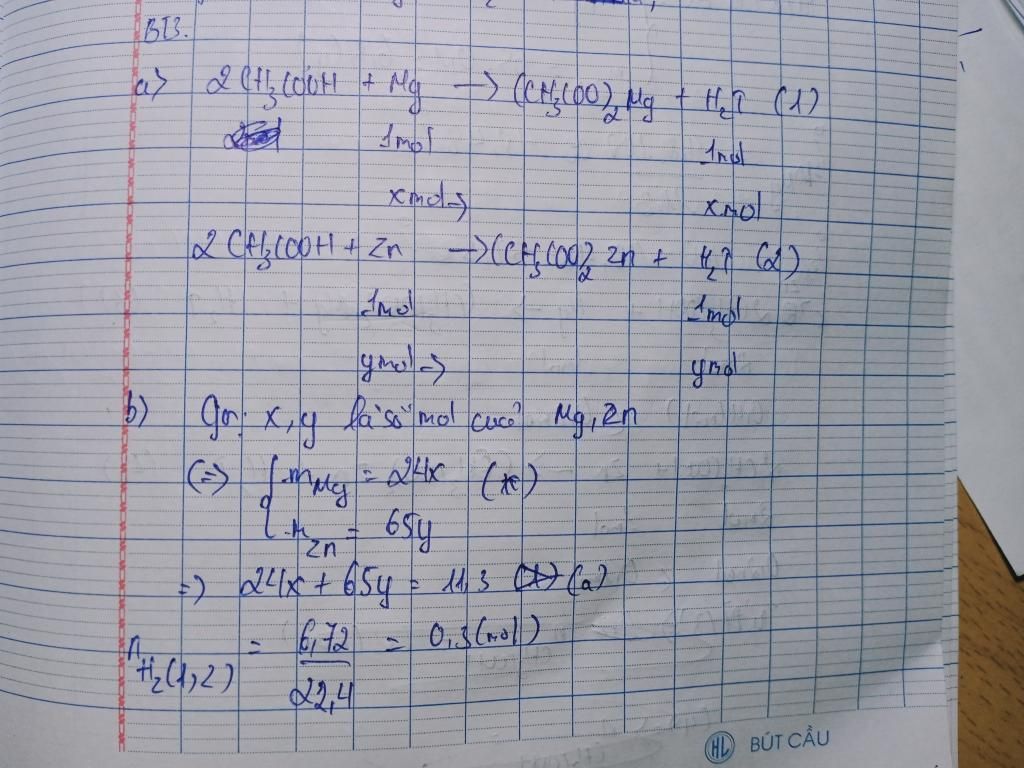 BT3.
a) 2CH₃COOH + Mg → (CH₃COO)₂Mg + H₂↑ (1)
1mol 1mol
xmol→ xmol
2CH₃COOH + Zn → (CH₃COO)₂Zn + H₂↑ (2)
1mol 1mol
ymol→ ymol
b) Gọi x, y là số mol của Mg, Zn
(=>) { mMg = 24x (*)
Zn = 65y
=> 24x + 65y = 11,3 (a)
nH₂(1,2) = 6,72 / 22,4 = 0,3 (mol)
HL BÚT CẦU